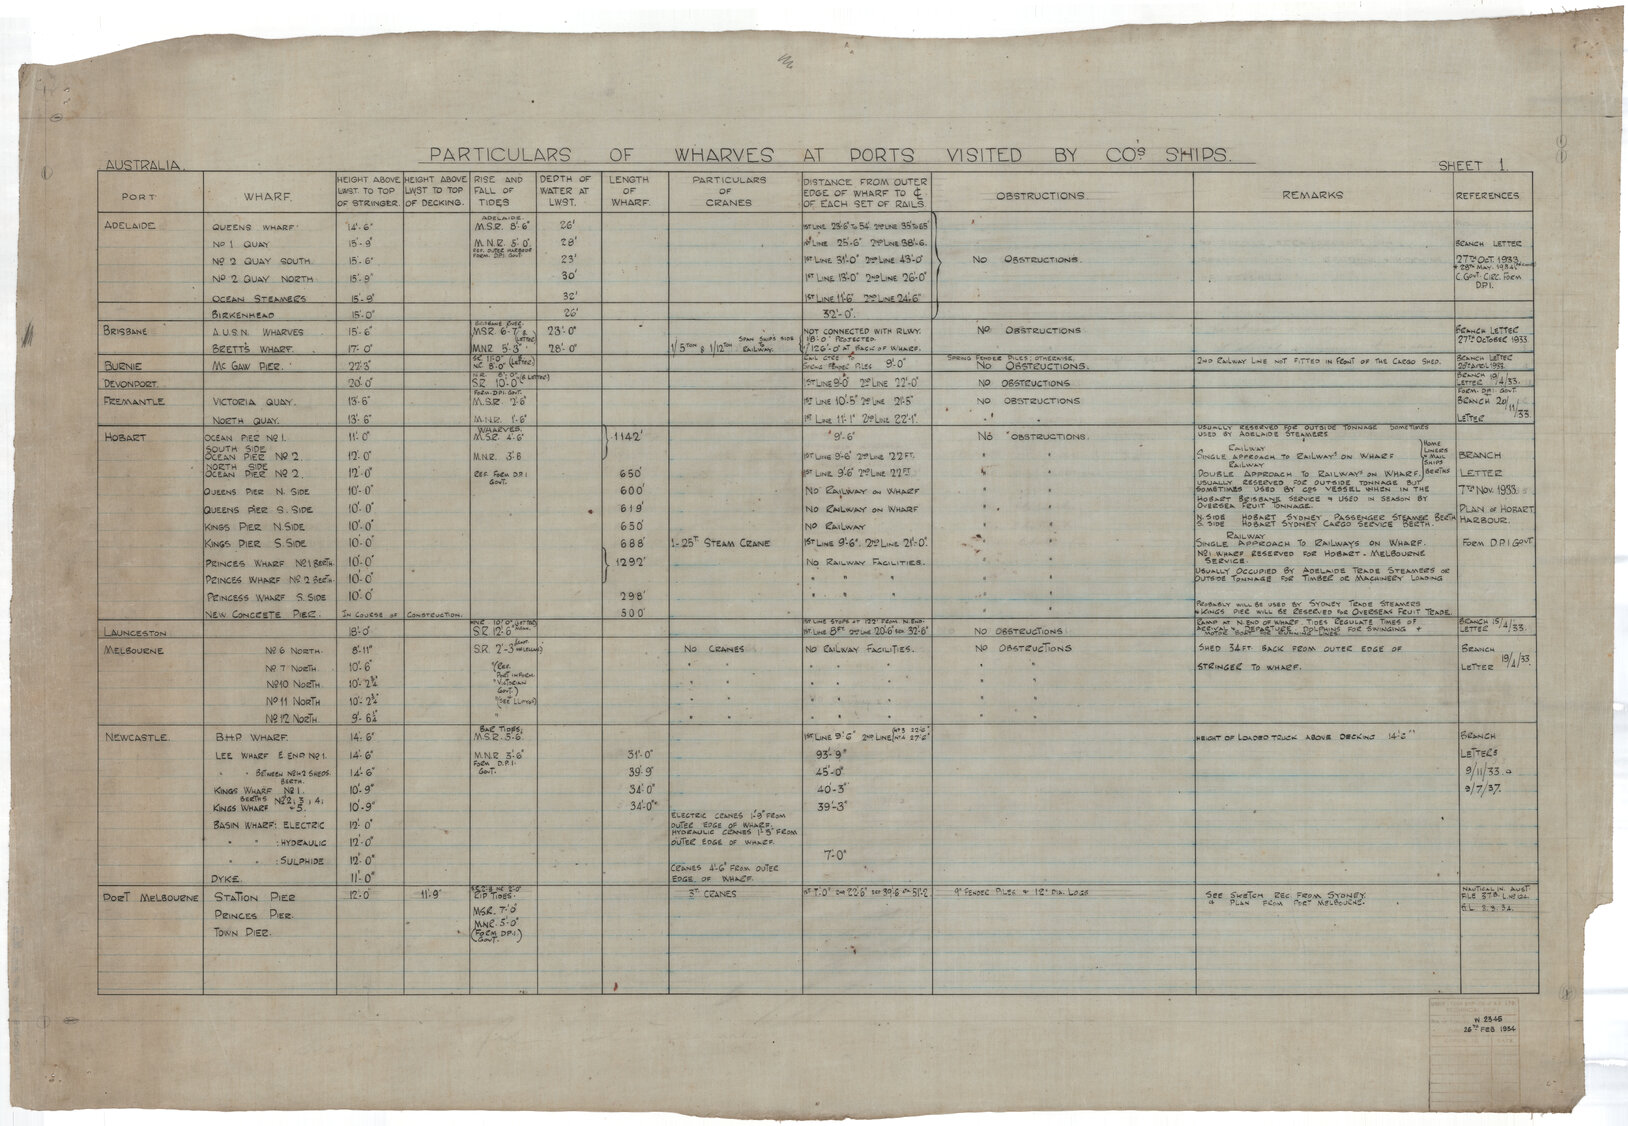 PARTICULARS OF WHARVES AT PORTS VISITED BY CO'S SHIPS.
AUSTRALIA.
SHEET 1.
PORT
WHARF.
HEIGHT ABOVE LWST. TO TOP OF STRINGER
HEIGHT ABOVE LWST TO TOP OF DECKING.
RISE AND FALL OF TIDES
DEPTH OF WATER AT LWST.
LENGTH OF WHARF.
PARTICULARS OF CRANES
DISTANCE FROM OUTER EDGE OF WHARF TO ℄ OF EACH SET OF RAILS
OBSTRUCTIONS
REMARKS
REFERENCES
ADELAIDE QUEENS WHARF 14'-6" ADELAIDE. M.S.R. 8'-6" 26' 1ST LINE 23'-6" TO 54' 2ND LINE 35' TO 65'
No 1 QUAY 15'-9" M.N.R. 5'-0" 28' 1ST LINE 25'-6" 2ND LINE 38'-6" BRANCH LETTER
REF. OUTER HARBOUR FORM. D.P.I. GOVT
No 2 QUAY SOUTH 15'-6" 23' 1ST LINE 31'-0" 2ND LINE 43'-0" NO OBSTRUCTIONS. 27TH OCT. 1933
No 2 QUAY NORTH 15'-9" 30' 1ST LINE 13'-0" 2ND LINE 26'-0" + 28TH MAY. 1934 C. GOVT. CIRC. FORM D.P.I.
OCEAN STEAMERS 15'-9" 32' 1ST LINE 11'-6" 2ND LINE 24'-6"
BIRKENHEAD 15'-0" 26' 32'-0".
BRISBANE A.U.S.N. WHARVES 15'-6" BRISBANE RIVER. M.S.R. 6'-7" & (LETTER) 23'-0" NOT CONNECTED WITH RLWY. NO OBSTRUCTIONS BRANCH LETTER
BRETT'S WHARF. 17'-0" M.N.R 5'-3" 28'-0" 1/5TON & 1/12TON SPAN SHIPS SIDE TO RAILWAY. 18'-0" PROJECTED. 126'-0" AT BACK OF WHARF. 27TH OCTOBER 1933.
BURNIE MC GAW PIER. 22'-3" SR 11'-0" NR 8'-0" (LETTER) RAIL CTRE TO SPRING FENDER PILES 9'-0" SPRING FENDER PILES; OTHERWISE, NO OBSTRUCTIONS. 2ND RAILWAY LINE NOT FITTED IN FRONT OF THE CARGO SHED. BRANCH LETTER
DEVONPORT. 20'-0" S.R. 10'-0" 1ST LINE 9'-0" 2ND LINE 22'-0" NO OBSTRUCTIONS BRANCH LETTER 19/4/33.
FREMANTLE VICTORIA QUAY. 13'-6" FORM. D.P.I. GOVT. M.S.R. 2'-6" 1ST LINE 10'-5" 2ND LINE 21'-5" NO OBSTRUCTIONS FORM. D.P.I. GOVT BRANCH 20/11/33.
NORTH QUAY. 13'-6" M.N.R. 1'-6" 1ST LINE 11'-1" 2ND LINE 22'-1" " " LETTER
HOBART OCEAN PIER No 1. 11'-0" WHARVES. M.S.R. 4'-6" 1142' 9'-6" NO OBSTRUCTIONS. USUALLY RESERVED FOR OUTSIDE TONNAGE SOMETIMES USED BY ADELAIDE STEAMERS
SOUTH SIDE OCEAN PIER No 2. 12'-0" M.N.R. 3'-8 1ST LINE 9'-6" 2ND LINE 22 FT. " " RAILWAY SINGLE APPROACH TO RAILWAYS ON WHARF HOME LINERS & MAIL SHIPS BERTHS BRANCH
NORTH SIDE OCEAN PIER No 2. 12'-0" REF. FORM D.P.I GOVT. 650' 1ST LINE 9'-6" 2ND LINE 22 FT. " " RAILWAY DOUBLE APPROACH TO RAILWAYS ON WHARF. LETTER
QUEENS PIER N. SIDE 10'-0" 600' NO RAILWAY ON WHARF " " USUALLY RESERVED FOR OUTSIDE TONNAGE BUT SOMETIMES USED BY COS VESSEL WHEN IN THE HOBART BRISBANE SERVICE & USED IN SEASON BY OVERSEA FRUIT TONNAGE. 7TH NOV. 1933
QUEENS PIER S. SIDE 10'-0" 619' NO RAILWAY ON WHARF " " PLAN OF HOBART HARBOUR.
KINGS PIER N. SIDE 10'-0" 650' NO RAILWAY " " N. SIDE HOBART SYDNEY PASSENGER STEAMER BERTH S. SIDE HOBART SYDNEY CARGO SERVICE BERTH.
KINGS PIER S. SIDE 10'-0" 688' 1-25T STEAM CRANE 1ST LINE 9'-6". 2ND LINE 21'-0". " " RAILWAY SINGLE APPROACH TO RAILWAYS ON WHARF. FORM D.P.I GOVT
PRINCES WHARF No 1 BERTH. 10'-0" 1292' NO RAILWAY FACILITIES. " " No 1 WHARF RESERVED FOR HOBART - MELBOURNE SERVICE.
PRINCES WHARF No 2 BERTH 10'-0" " " " " " USUALLY OCCUPIED BY ADELAIDE TRADE STEAMERS OR OUTSIDE TONNAGE FOR TIMBER OR MACHINERY LOADING
PRINCESS WHARF S. SIDE 10'-0" 298' " " " " "
NEW CONCRETE PIER. IN COURSE OF CONSTRUCTION. 500' " " PROBABLY WILL BE USED BY SYDNEY TRADE STEAMERS & KINGS PIER WILL BE RESERVED FOR OVERSEAS FRUIT TRADE.
LAUNCESTON 18'-0" S.R. 12'-6" 1ST LINE STOPS AT 122' FROM N. END. 1ST LINE 8FT 2ND LINE 20'-6" 3RD 32'-6" NO OBSTRUCTIONS RAMP AT N. END OF WHARF. TIDES REGULATE TIMES OF ARRIVAL & DEPARTURE. DOLPHINS FOR SWINGING + MOTOR BOAT FOR RUNNING LINES. BRANCH LETTER 15/4/33.
MELBOURNE No 6 NORTH. 8'-11" S.R. 2'-3" NO CRANES NO RAILWAY FACILITIES. NO OBSTRUCTIONS SHED 34FT BACK FROM OUTER EDGE OF BRANCH
No 7 NORTH 10'-6" (REF. PORT INFORM. VICTORIAN GOVT.) " " " " " " " STRINGER TO WHARF. LETTER 19/4/33.
No 10 NORTH. 10'-2¾" " " " " " " "
No 11 NORTH 10'-2¾" (SEE LLOYDS) " " " " " " "
No 12 NORTH. 9'-6¼" " " " " " " "
NEWCASTLE. B.H.P. WHARF. 14'-6" BAR TIDES; M.S.R. 5'-6" 1ST LINE 9'-6" 2ND LINE No 3 22'-6" No 4 27'-6" HEIGHT OF LOADED TRUCK ABOVE DECKING 14'-6" BRANCH
LEE WHARF E END No 1. 14'-6" M.N.R 3'-6" FORM D.P.I. GOVT. 31'-0" 93'-9" LETTERS
" " BETWEEN No 1 & 2 SHEDS. 14'-6" 39'-9" 45'-0" 9/11/33. &
KINGS WHARF BERTH. No 1. 10'-9" 34'-0" 40'-3" 9/7/37.
KINGS WHARF BERTHS No 2; 3; 4; + 5. 10'-9" 34'-0" 39'-3"
BASIN WHARF: ELECTRIC 12'-0" ELECTRIC CRANES 1'-9" FROM OUTER EDGE OF WHARF.
" " : HYDRAULIC 12'-0" HYDRAULIC CRANES 1'-5" FROM OUTER EDGE OF WHARF
" " : SULPHIDE 12'-0" 7'-0"
DYKE. 11'-0" CRANES 4'-6" FROM OUTER EDGE OF WHARF.
PORT MELBOURNE STATION PIER 12'-0" 11'-9" RIP TIDES. 3T CRANES 1ST 7'-0" 2ND 22'-6" 3RD 39'-6 4TH 51'-2 9" FENDER PILES + 12" DIA. LOGS SEE SKETCH REC. FROM SYDNEY. & PLAN FROM PORT MELBOURNE. NAUTICAL IN. AUST
PRINCES PIER. M.S.R. 7'-0"
TOWN PIER. M.N.R. 5'-0" (FORM D.P.I.) GOVT.
W. 2345
26TH FEB 1934